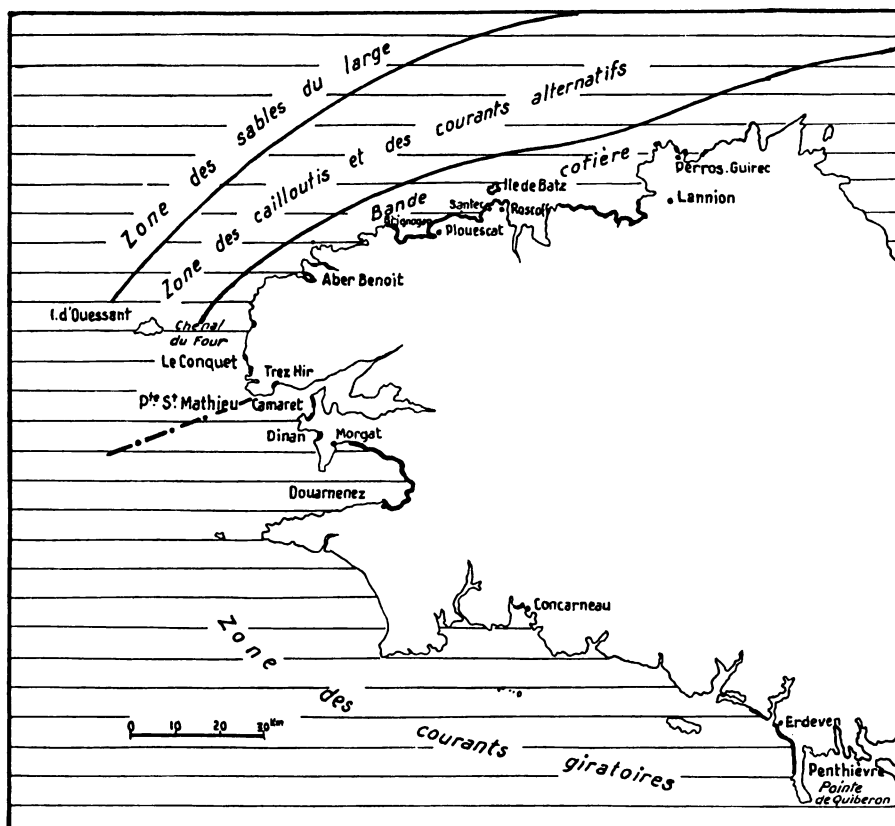 Zone des sables du large
Zone des cailloutis et des courants alternatifs
Bande cotière
Perros-Guirec
Lannion
Ile de Batz
Santec
Roscoff
Brignogan
Plouescat
Aber Benoit
I. d'Ouessant
Chenal
du Four
Le Conquet
Trez Hir
Pte St Mathieu
Camaret
Dinan
Morgat
Douarnenez
Concarneau
Zone des courants giratoires
0 10 20 30 Km
Erdeven
Penthièvre
Pointe
de Quiberon